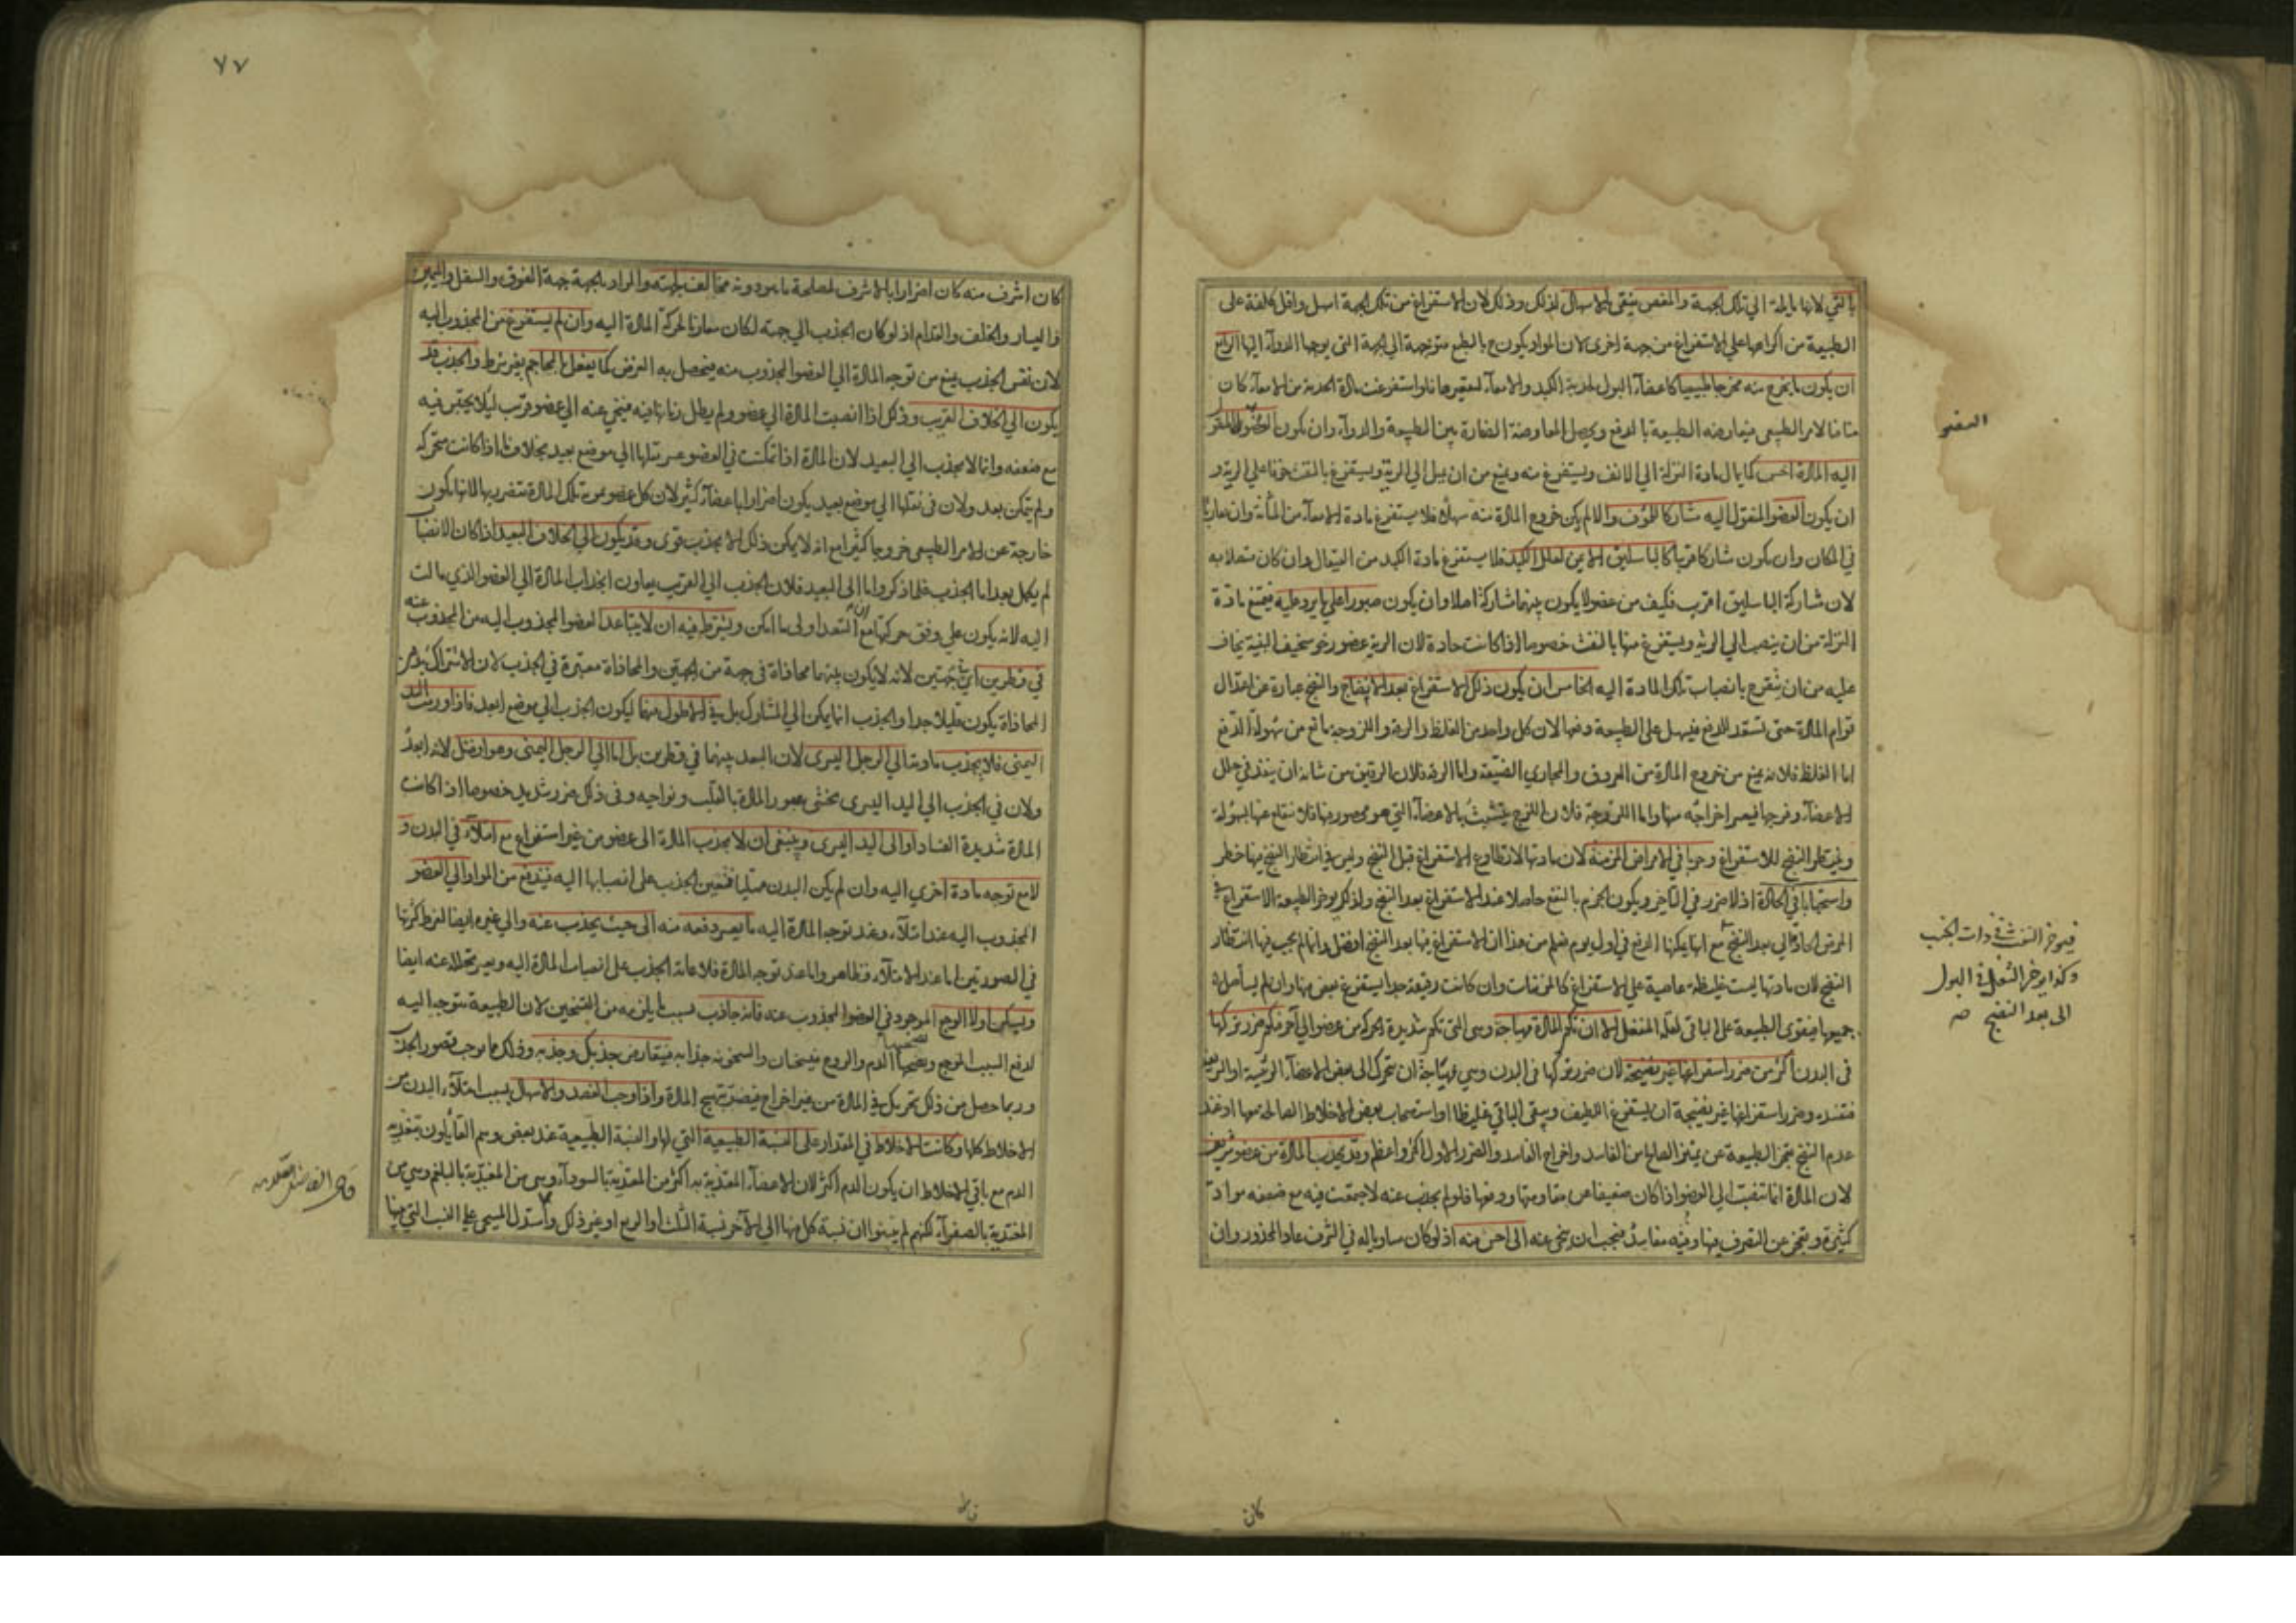 بالقي لانها مايلة الي تلك الجهة والمغص ينقي بالاسهال لذلك وذلك لان الاستفراغ من تلك الجهة اسهل واقل كلفة على
الطبيعة من اكراهها علي الاستفراغ من جهة اخرى لان المواد يكون ح بالطبع متوجهة الي الجهة التي يوجهها الدوآء اليها الرابع
ان يكون ما يخرج منه مخرجا طبيعيا كاعضآء البول لحدبة الكبد والامعآء لتقعيرها فلو استفرغت مادة الحدبة من الامعآء كان
منافيا للامر الطبيعي فيعارضه الطبيعة بالدفع ويحصل المعاوضة الضارة بين الطبيعة والدوآء وان يكون العضو المنقول
اليه المادة اخس كما يمال مادة النزلة الي الانف ويستفرغ منه ويمنع من ان يميل الي الرية ويستفرغ بالنفث خوفا علي الرية و
ان يكون العضو المنقول اليه مشاركا للمؤف والا لم يكن خروج المادة منه سهلا فلا يستفرغ مادة الامعآء من المثانة وان تقاربا
في المكان وان يكون مشاركا قريبا كالباسليق الايمن لعلل الكبد فلا يستفرغ مادة الكبد من القيفال وان كان متصلا به
لان شاركة الباسليق اقرب فكيف من عضو لا يكون بينهما شاركة اصلا وان يكون صبورا علي ما يرد عليه فيمنع مادة
النزلة من ان ينصب الي الرئة ويستفرغ منها بالنفث خصوصا اذا كانت حادة لان الرية عضو رخو سخيف البنية يخاف
عليه من ان يتقرح بانصباب تلك المادة اليه الخامس ان يكون ذلك الاستفراغ بعد الانضاج والنضج عبارة عن اعتدال
قوام المادة حتى تستعد للدفع فيسهل على الطبيعة دفعها لان كل واحد من الغلظ والرقة واللزوجة مانع من سهولة الدفع
اما الغلظ فلانه يمنع من خروج المادة من العروق والمجاري الضيقة واما الرقة فلان الرقيق من شانه ان ينفذ في خلل
الاعضآء وفرجها فيعسر اخراجه منها واما اللزوجة فلان اللزج يتشبث بالاعضآء التي هو محصور فيها فلا ينقلع عنها بسهولة
وينتظر النضج للاستفراغ وجوبا في الامراض المزمنة لان مادتها لا تطاوع الاستفراغ قبل النضج وليس في انتظار النضج فيها خطر
واستحبابا في الحادة اذ لا ضرر في التاخير ويكون الجزم بالنفع حاصلا عند الاستفراغ بعد النضج ولذلك يوخر الطبيعة الاستفراغ في
المرض الحاد الي بعد النضج مع انها يمكنها الدفع في اول يوم فعلم من هذا ان الاستفراغ فيها بعد النضج افضل وانما لم يجب فيها انتظار
النضج لان مادتها ليست غليظة عاصية علي الاستفراغ كالمزمنات وان كانت رقيقة جدا يستفرغ بعض منها وان لم يستأصل
جميعها فيقوى الطبيعة على الباقي لقلته المنفعل الا ان تكون المادة مهياجة وهي التي تكون شديدة الحركة من عضو الي آخر فيكون ضرر تركها
في البدن اكثر من ضرر استفراغها غير نضيجة لان ضرر تركها في البدن وهي مهياجة ان تتحرك الى بعض الاعضآء الرئيسة او الشريفة
فتفسده وضرر استفراغها غير نضيجة ان يستفرغ اللطيف ويبقي الباقي غليظا او استصحاب بعض الاخلاط الصالحة معها او عند
عدم النضج تعجز الطبيعة عن تمييز الصالح من الفاسد واخراج الفاسد والضرر الاول اكثر واعظم وقد يجذب المادة من عضو شريف
لان المادة انما تنصب الي العضو اذا كان ضعيفا عن مقاومتها ودفعها فلو لم يجذب عنه لاجتمعت فيه مع ضعفه مواد
كثيرة ويعجز عن التصرف فيها وفيه مفاسد فيجب ان ينحى عنه الى اخس منه اذ لو كان مساويا له في الشرف عاد المحذور وان
العضو
فيوخر النفث في ذات الجنب
وكذا يوخر الثفل في البول
الى بعد النضج صح
كان
٧٧
كان اشرف منه كان اضرارا بالاشرف لمصلحة ما هو دونه مخالف لجهته والمراد بالجهة جهة الفوق والسفل واليمين
واليسار والخلف والقدام اذ لو كان الجذب الي جهته لكان معاونا لحركة المادة اليه وان لم يستفرغ من المجذوب اليه
لان نفس الجذب يمنع من توجه المادة الي العضو المجذوب منه فيحصل به الغرض كما يفعل بالمحاجم بغير شرط والجذب قد
يكون الي الخلاف القريب وذلك اذا انصبت المادة الي عضو ولم يطل زمانها فيه فينحي عنه الي عضو قريب ليلا يحتبس فيه
مع ضعفه وانما لا يجذب الي البعيد لان المادة اذا تمكنت في العضو عسر نقلها الي موضع بعيد بخلاف ما اذا كانت متحركة
ولم تتمكن بعد ولان في نقلها الي موضع بعيد يكون اضرارا باعضآء كثيرة لان كل عضو مرت به تلك المادة تتضرر بها لانها يكون
خارجة عن الامر الطبيعي خروجا كثيرا مع انه لا يمكن ذلك الا بجذب قوى وقد يكون الي الخلاف البعيد اذا كان الانصباب
لم يكمل بعد اما الجذب فلما ذكر واما الى البعيد فلان الجذب الي القريب يعاون انجذاب المادة الي العضو الذي مالت
اليه لانه يكون علي وفق حركتها مع ان التبعد اولى ما امكن ويشترط فيه ان لا يتباعد العضو المجذوب اليه من المجذوب عنه
في قطرين اي جهتين لانه لا يكون بينهما محاذاة في جهة من الجهتين والمحاذاة معتبرة في الجذب لان الاشتراك بدون
المحاذاة يكون قليلا جدا والجذب انما يمكن الي المشارك بل في الاطول منهما ليكون الجذب الي موضع ابعد فاذا ورمت اليد
اليمنى فلا يجذب مادتها الي الرجل اليسرى لان البعد بينهما في قطرين بل اما الي الرجل اليمنى وهو افضل لانه ابعد
ولان في الجذب الي اليد اليسرى يخشى عبور المادة بالقلب ونواحيه وفي ذلك ضرر شديد خصوصا اذا كانت
المادة شديدة الفساد او الى اليد اليسرى وينبغي ان لا يجذب المادة الى عضو من غير استفراغ مع امتلآء في البدن و
لا مع توجه مادة اخري اليه وان لم يكن البدن ممتليا فتعين الجذب على انصبابها اليه فيندفع من المواد الي العضو
المجذوب اليه عند امتلآء وعند توجه المادة اليه ما يعسر دفعه منه الى حيث يجذب عنه والي غيره ايضا لفرط كثرتها
في الصورتين اما عند الامتلآء فظاهر واما عند توجه المادة فلاعانة الجذب على انصباب المادة اليه ويعسر تحللا عنه ايضا
وليسكن اولا الوجع الموجود في العضو المجذوب عنه فانه جاذب بسبب ما يلزمه من التسخين لان الطبيعة يتوجه اليه
لدفع السبب الموجع ويصحبها الدم والروح فيسخنان والسخونة جذابة فيتعارض جذبك وجذبه وذلك مما يوجب قصور الجذب
وربما حصل من ذلك تحريك في المادة من غير اخراج فيضر بتهييج المادة واذا وجب الفصد والاسهال بسبب امتلآء البدن من
الاخلاط كلها وكانت الاخلاط في المقدار على النسبة الطبيعية التي لها والنسبة الطبيعية عند بعض وهم القايلون بتغذية
الدم مع باقي الاخلاط ان يكون الدم اكثر لان الاعضآء المغتذية به اكثر من المغتذية بالسودآء وهي من المغتذية بالبلغم وهي من
المغتذية بالصفرآء لكنهم لم يبينوا ان نسبة كل منها الي الاخر نسبة الثلث او الربع او غير ذلك واستدل المسيحي علي النسب التي بينها